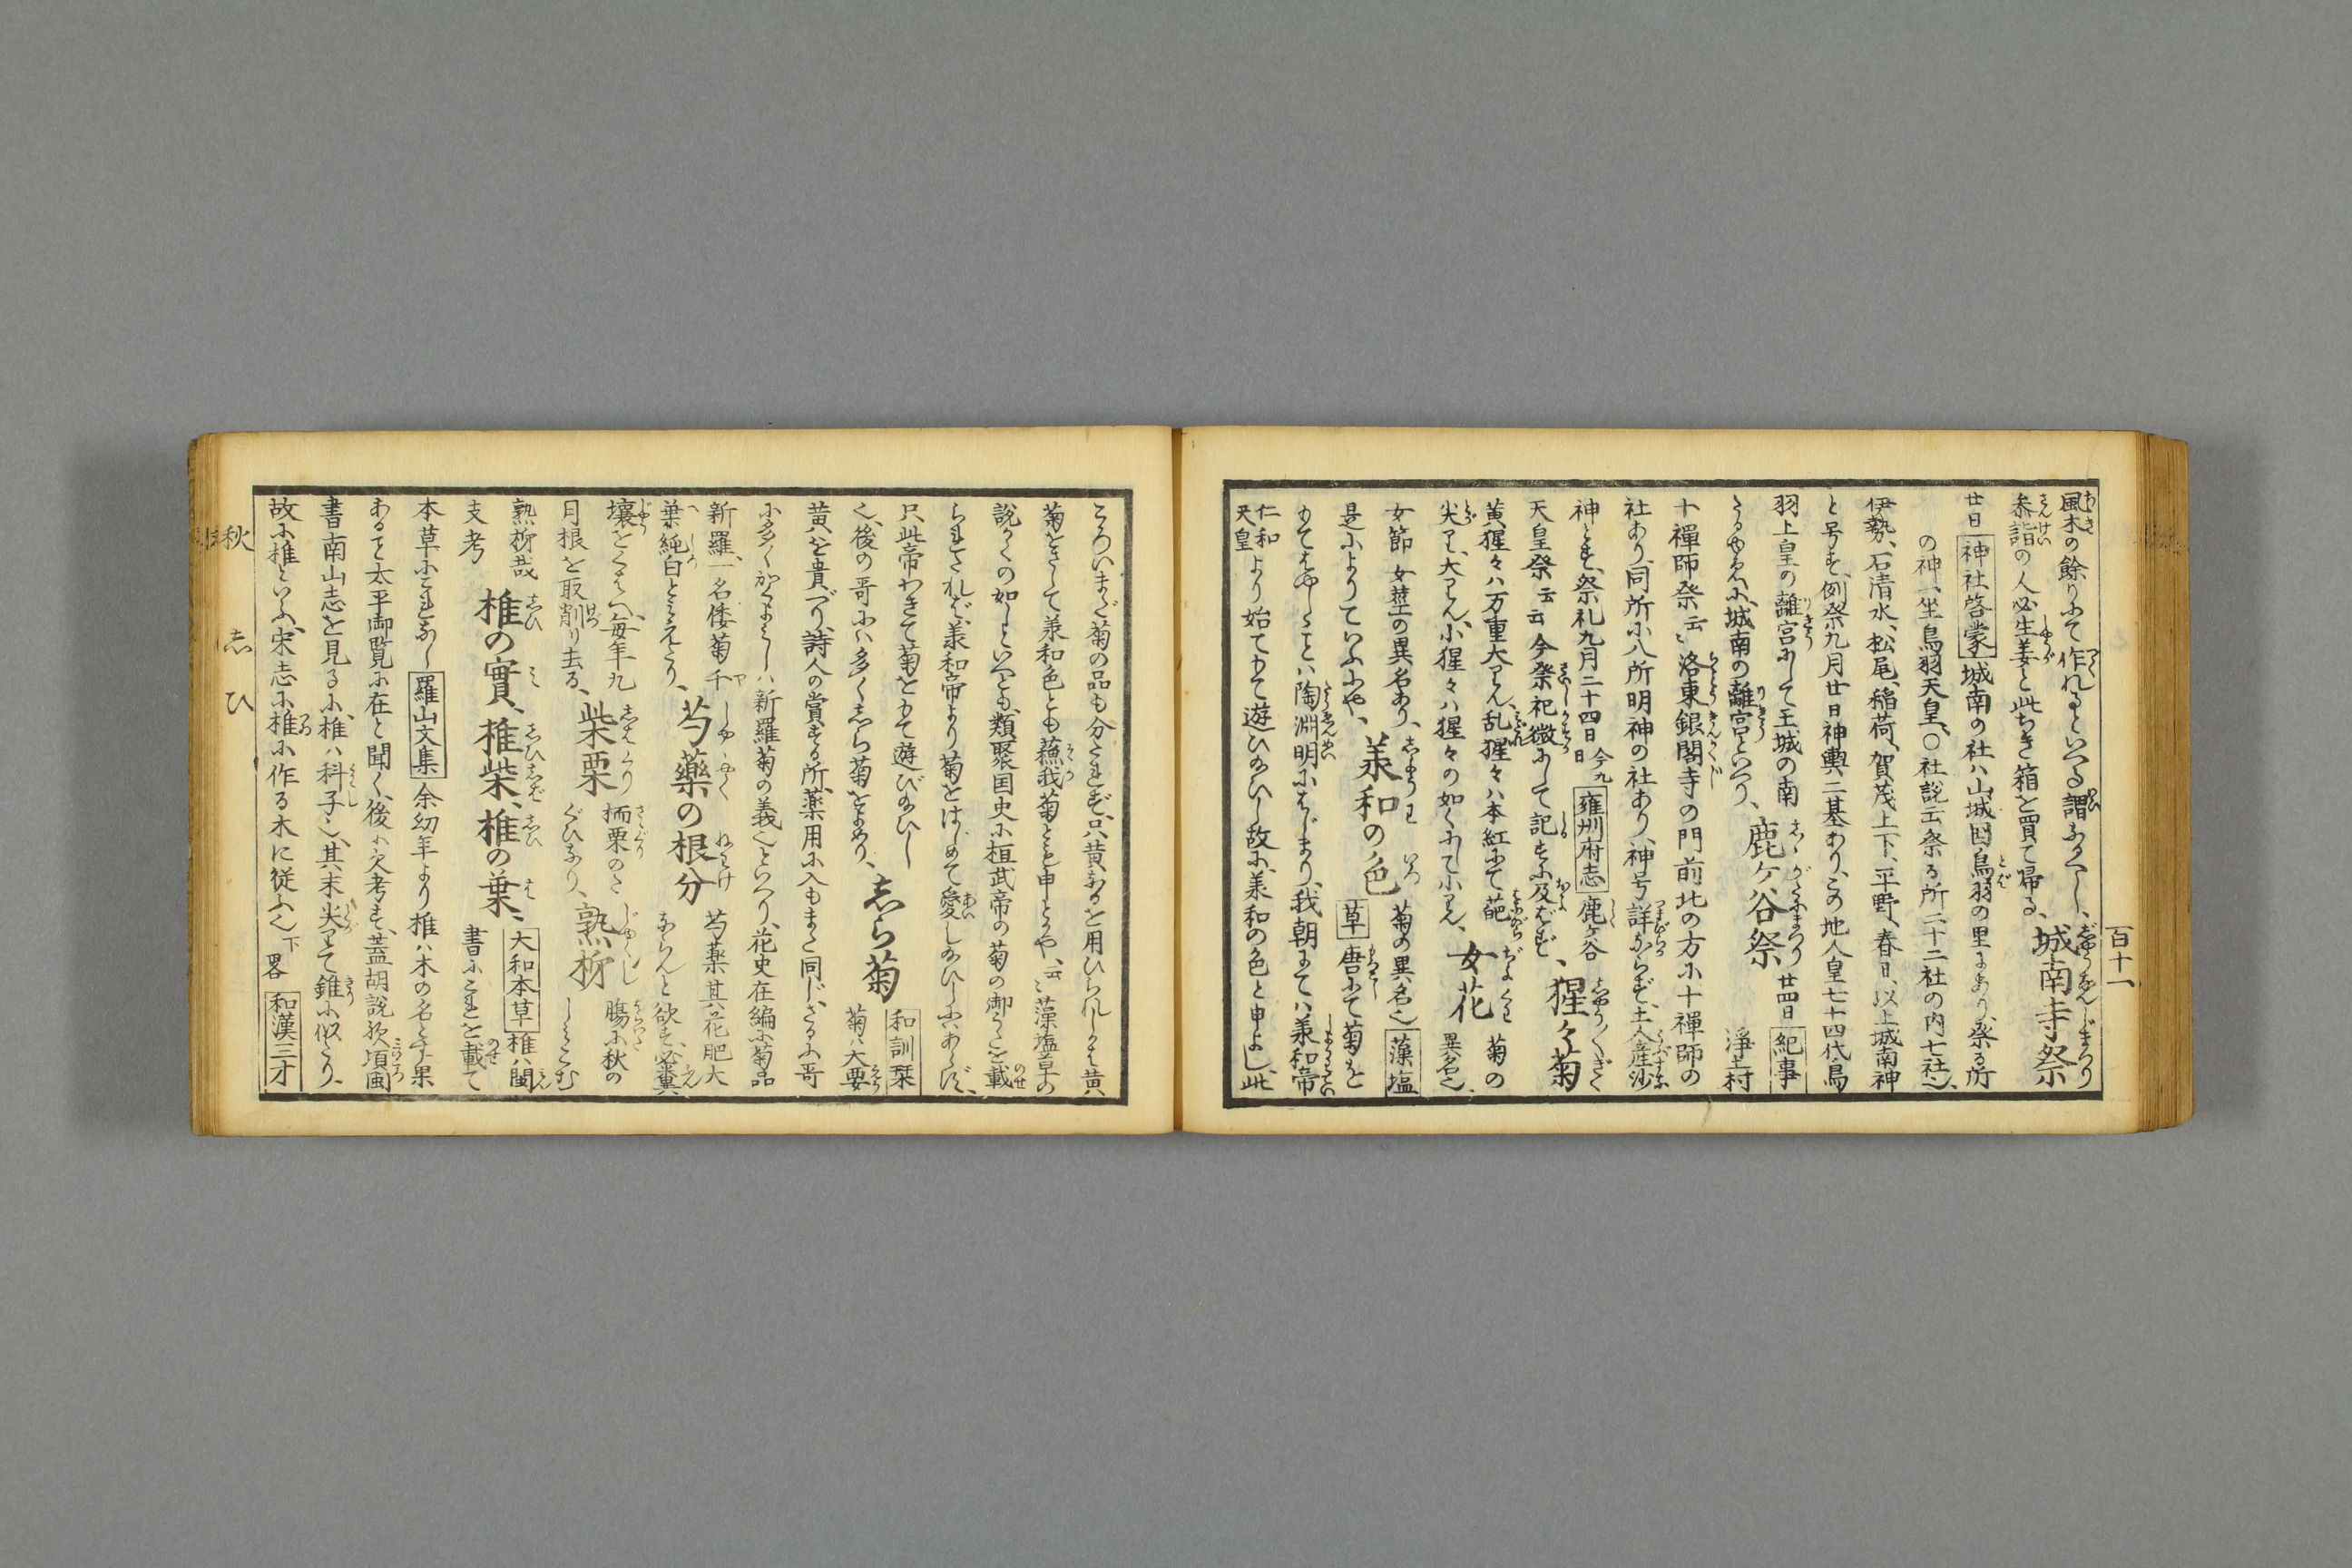 百十一
風木の餘りにて作れるといへる謂なるべし、城南寺祭
参詣の人必生姜と此ちぎ箱を買て帰る、
廿日 神社啓蒙 城南の社ハ山城国鳥羽の里にあり、祭る所
の神一坐鳥羽天皇、〇社説云祭る所二十二社の内七社也、
伊勢、石清水、松尾、稲荷、賀茂上下、平野、春日、以上城南神
と号す、例祭九月廿日神輿二基あり、この地人皇七十四代鳥
羽上皇の離宮にして王城の南
たるゆゑに、城南の離宮といへり、鹿ケ谷祭 廿四日 紀事 浄土村
十禪師祭云〻洛東銀閣寺の門前北の方に十禪師の
社あり、同所に八所明神の社あり、神号詳ならず、土人産沙
神とす、祭礼九月二十四日 今九日 雍州府志 鹿ケ谷
天皇祭云云今祭祀微にして記すに及ばず、猩々菊
黄猩々ハ万重大りん、乱猩々ハ本紅にて葩
尖り、大りん、小猩々ハ猩々の如くにして小りん、女花 菊の異名也、
女節 女莖の異名あり、羕和の色 菊の異名也 藻塩草
是によりていふにや、唐にて菊を
もてはやしゝことハ陶淵明にはじまり、我朝にてハ羕和帝
仁和天皇より始てもて遊ひ給ひし故に、羕和の色と申よし、此
ころいまだ菊の品も分たれず、只黄なるを用ひられしかは黄
菊をさして羕和色とも蘓我菊とも申とかや、云〻藻塩草の
説かくの如しといへども、類聚国史に桓武帝の菊の御うたを載
られたれば、羕和帝より菊をはじめて愛し給ひしにハあらず、
只此帝わきて菊をもて遊び給ひし
也、後の哥にハ多くしら菊をよめり、志ら菊 和訓栞 菊ハ大要
黄を貴べり、詩人の賞する所、薬用に入もまた同じ、さるに哥
に多くかくよみしハ新羅菊の義也といへり、花史在編に菊品
新羅、一名倭菊千
葉純白とみえたり、芍藥の根分 芍薬其花肥大ならんと欲す、必糞
壤をくはへ、毎年九
月根を取削り去る、柴栗 栭栗のたぐひなり、熟柹 腸に秋のしみこむ
熟柹哉
支考 椎の實、椎柴、椎の葉、大和本草 椎ハ閩書にこれを載て
本草にこれなし 羅山文集 余幼年より椎ハ木の名と子果
あると太平御覧に在と聞く、後に欠考す、蓋胡説欤、項閩
書南山志を見るに、椎ハ科子也、其末尖りて錐に似たり、
故に椎といふ、宋志に椎に作る木に従ふ也 下畧 和漢三才
秋
志
ひ